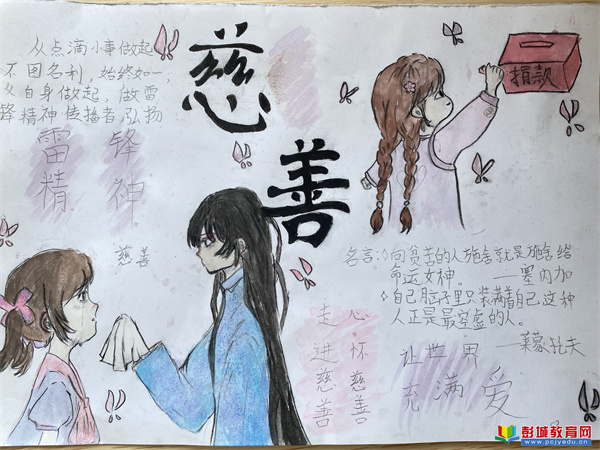 慈善
从点滴小事做起
不因名利，始终如一，
从自身做起，做雷
锋精神传播者，弘扬
雷锋
精神
捐款
慈善
名言：◇向贫苦的人施舍就是施舍给
命运女神。——塞内加
◇自己脑子里只装满着自己，这种
人正是最空虚的人。
——莱蒙托夫
心怀慈善
走进慈善
让世界
充满爱
彭城教育网
www.pcjyedu.cn